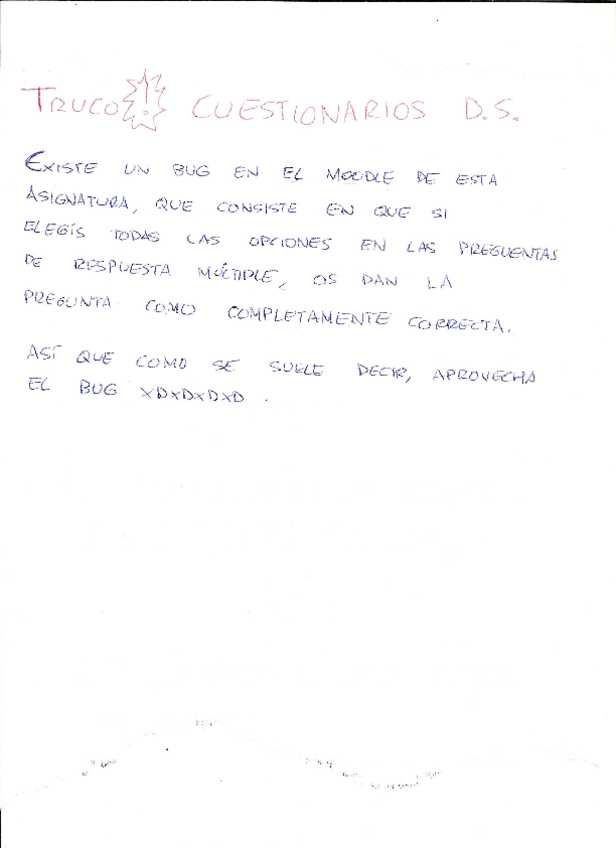 TRUCO! CUESTIONARIOS D.S.
EXISTE UN BUG EN EL MOODLE DE ESTA
ASIGNATURA, QUE CONSISTE EN QUE SI
ELEGÍS TODAS LAS OPCIONES EN LAS PREGUENTAS
DE RESPUESTA MÚLTIPLE, OS DAN LA
PREGUNTA COMO COMPLETAMENTE CORRECTA.
ASÍ QUE COMO SE SUELE DECIR, APROVECHA
EL BUG XDXDXDXD.